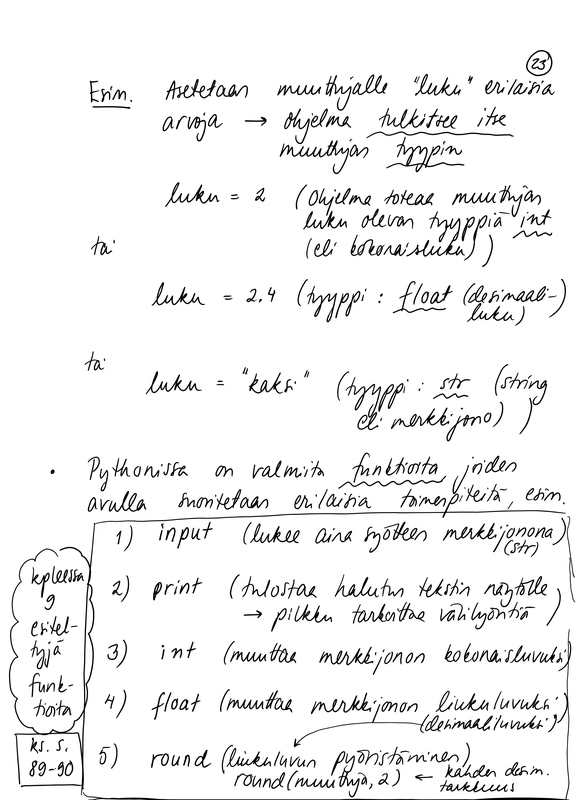 23
Esim. Asetetaan muuttujalle "luku" erilaisia
arvoja → ohjelma tulkitsee itse
muuttujan tyypin
luku = 2 (Ohjelma toteaa muuttujan
luku olevan tyyppiä int
(eli kokonaisluku))
tai
luku = 2.4 (tyyppi : float (desimaali-
luku)
tai
luku = "kaksi" (tyyppi : str (string
eli merkkijono))
• Pythonissa on valmiita funktioita joiden
avulla suoritetaan erilaisia toimenpiteitä, esim.
1) input (lukee aina syötteen merkkijonona)
(str)
2) print (tulostaa halutun tekstin näytölle
→ pilkku tarkoittaa välilyöntiä)
3) int (muuttaa merkkijonon kokonaisluvuksi)
4) float (muuttaa merkkijonon liukuluvuksi)
(desimaaliluvuksi)
5) round (liukuluvun pyöristäminen)
round(muuttuja, 2) ← kahden desim.
tarkkuus
kpleessa
9
esitel-
tyjä
funk-
tioita
ks. s.
89-90